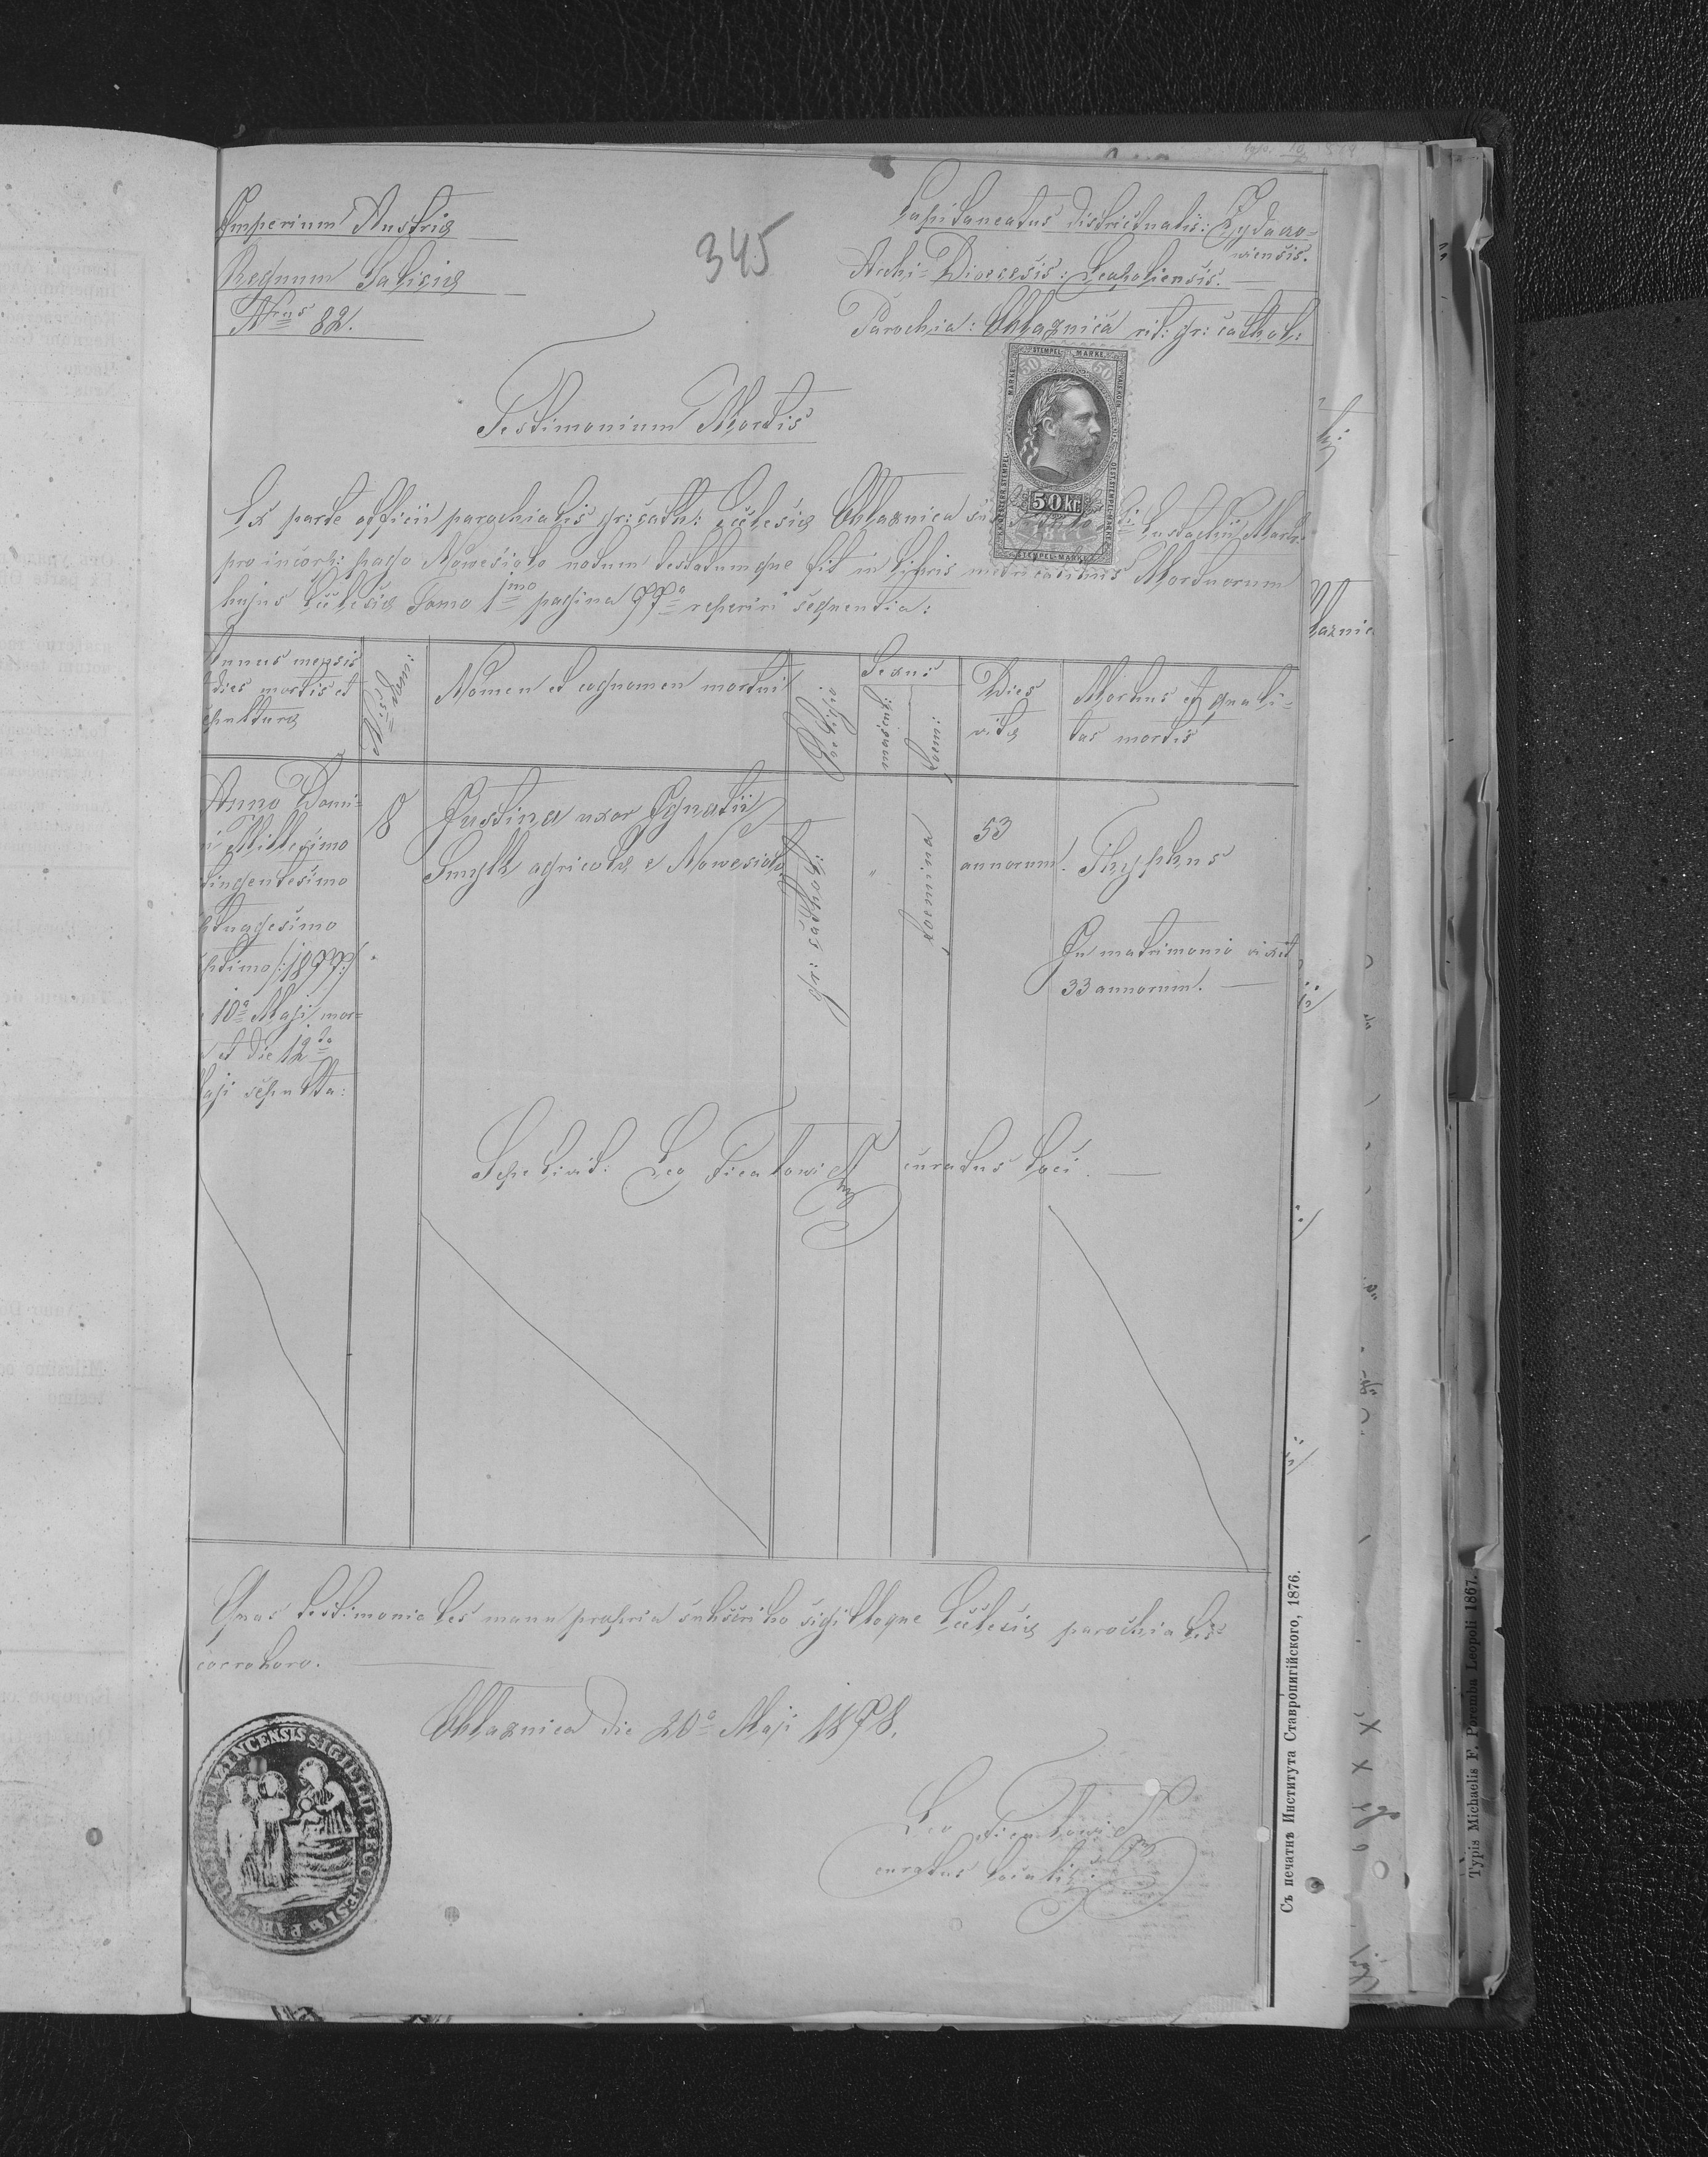 Imperium Austriæ
Regnum Galiciæ
Nrus 82.
345
Capitaneatus districtualis: Żydaczo-
wiensis.
Archi-Dioecesis: Leopoliensis.
Parochia: Obłaznica rit: gr: cathol:
STEMPEL MARKE
50 kr
Testimonium Mortis
Ex parte officii parochialis gr: cath: Ecclesiæ Obłaznica
pro incorp: pago Nowesioło notum testatumque fit in libris metricalibus Mortuorum
hujus Ecclesiæ Tomo 1mo pagina 77a reperiri sequentia:
Annus mensis
dies mortis et
sepulturæ
Nomen et cognomen mortui
Religio
Sexus
mascul:
foemi:
Dies
vitæ
Morbus et quali-
tas mortis
Anno Domi-
ni Millesimo
tingentesimo
tuagesimo
ptimo /:1877:/
10a Maji mor-
et die 12da
aji sepulta:
8
Justina uxor Ignatii
Smyk agricolæ e Nowesioło
gr: cathol:
"
foeminina
53
annorum.
Thyphus
In matrimonio vixit
33 annorum.
Sepelivit: Leo curatus loci.
Quas testimoniales manu propria subscribo sigilloque Ecclesiæ parochialis
corroboro.
Obłaznica die 20a Maji 1878.
Leo
curatus localis
SIGILLUM ECCLESIÆ
Съ печатнѣ Института Ставропигійского, 1876.
Typis Michaelis F. Poremba Leopoli 1867.